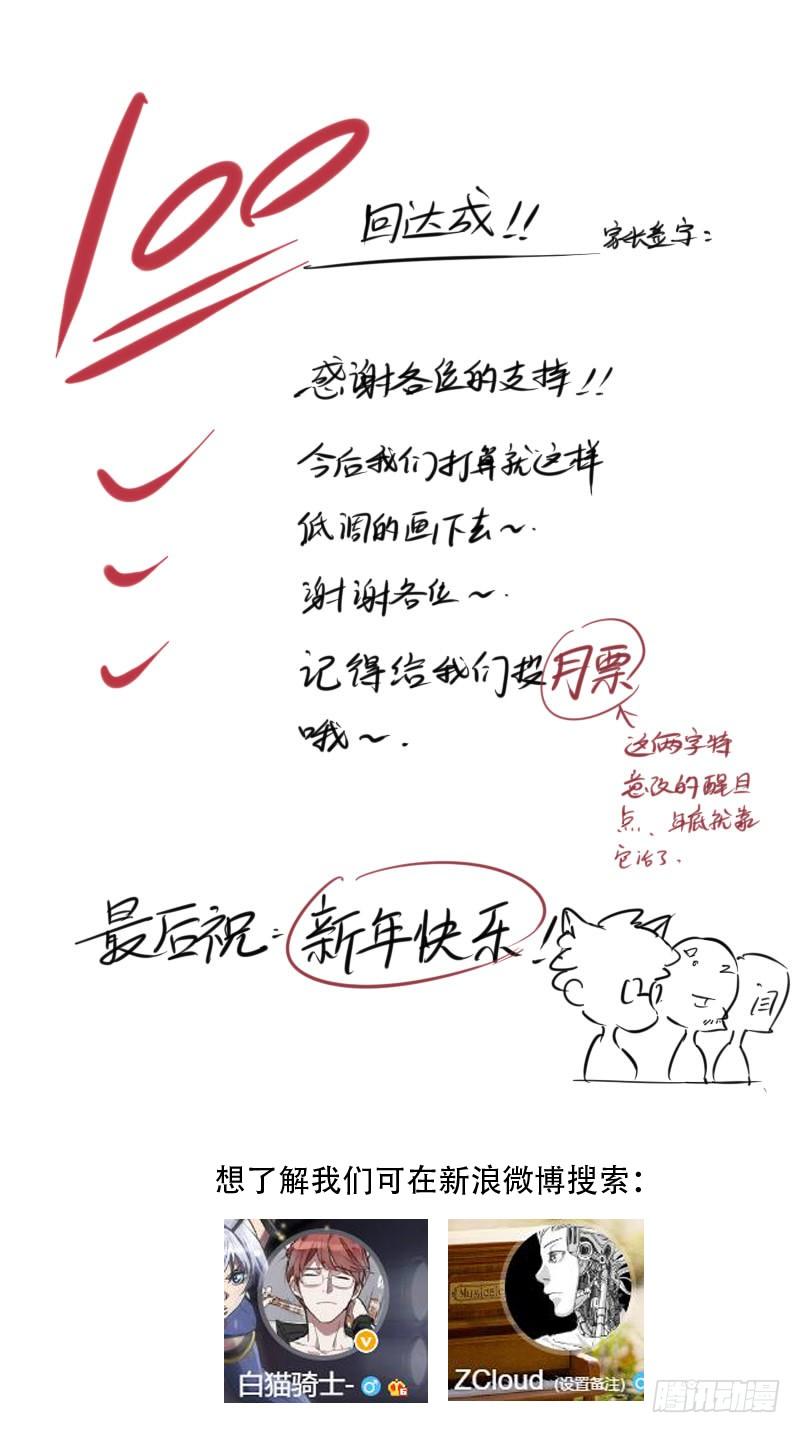 100
回达成!!
家长签字:
感谢各位的支持!!
今后我们打算就这样
低调的画下去~.
谢谢各位~.
记得给我们投月票
哦~.
这俩字特
意改的醒目
点、月底就靠
它活了.
最后祝:新年快乐!
想了解我们可在新浪微博搜索:
Musical
白猫骑士-
ZCloud (设置备注)
腾讯动漫